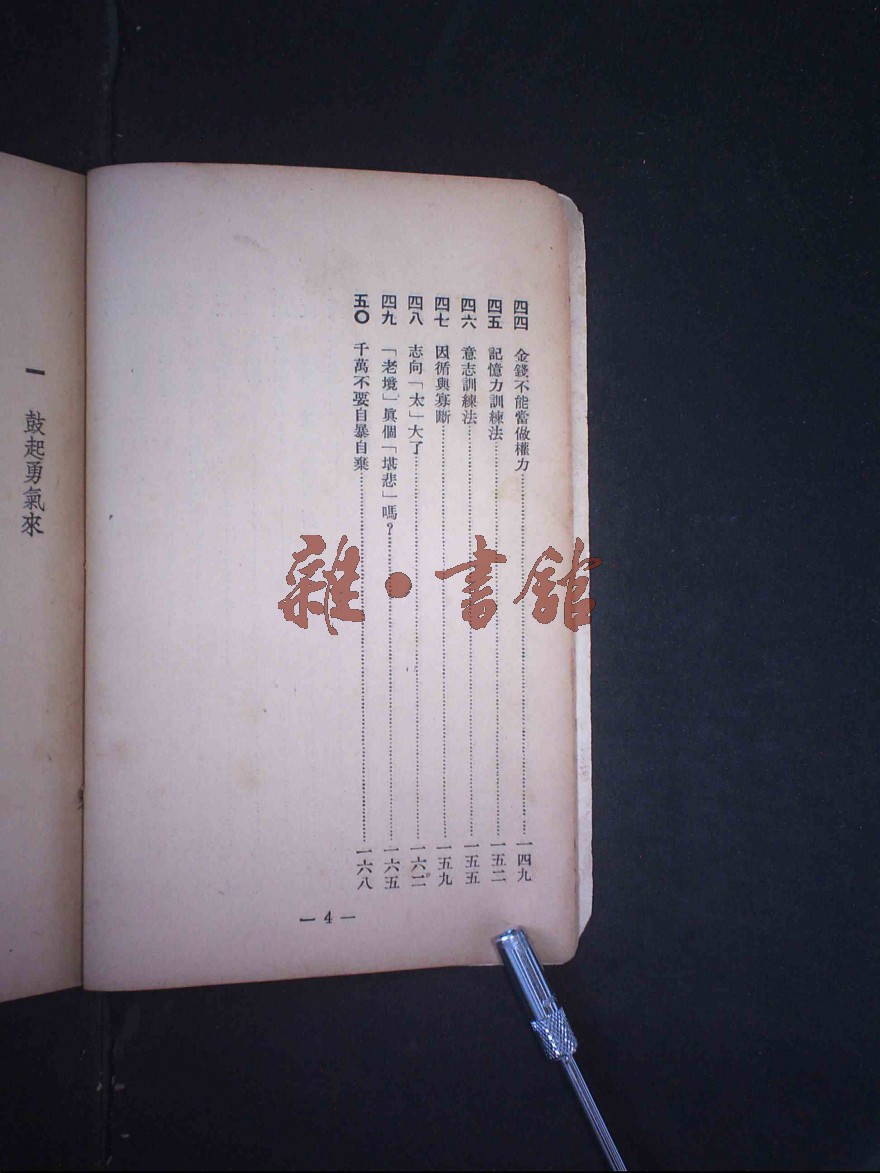 四四 金錢不能當做權力……一四九
四五 記憶力訓練法……一五二
四六 意志訓練法……一五五
四七 因循與寡斷……一五九
四八 志向「太」大了……一六二
四九 「老境」眞個「堪悲」嗎？……一六五
五〇 千萬不要自暴自棄……一六八
—4—
一 鼓起勇氣來
雜·書館